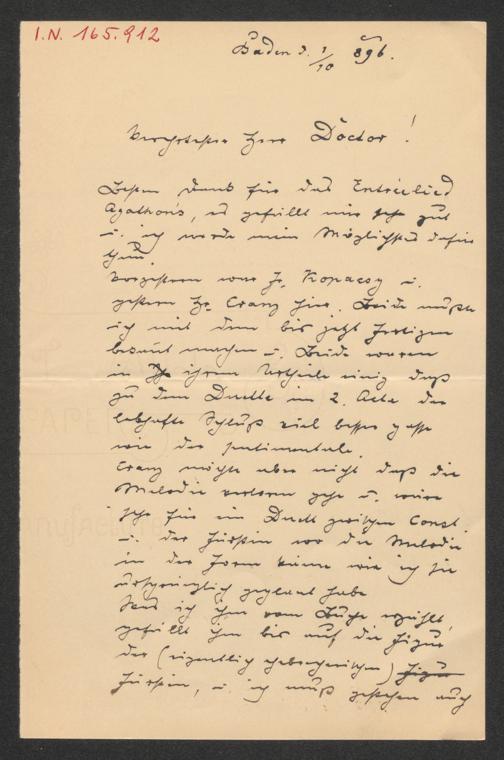 I.N. 165.912
Baden d. 1/10 896.
Verehrtester Herr Doctor!
Besten Dank für das Entréelied
Agathon's, es gefällt mir sehr gut
u. ich werde mein Möglichstes dafür
thun.
Vorgestern war Fr. Kopacsy u.
gestern Hr. Cranz hier. Beide mußte
ich mit dem bis jetzt fertigen
bekannt machen u. Beide waren
in ihrem Urtheile einig daß
zu dem Duette im 2. Acte der
lebhafte Schluß viel besser passe
wie der sentimentale.
Cranz möchte aber nicht daß die
Melodie verloren gehe u. wäre
sehr für ein Duett zwischen Const.
u. der Fürstin wo die Melodie
in der Form käme wie ich sie
ursprünglich geplant habe
Was ich ihm vom Buche erzählt,
gefällt ihm bis auf die Figur
der (eigentlich ehebrecherischen) Figur
Fürstin, u. ich muß gestehen auch